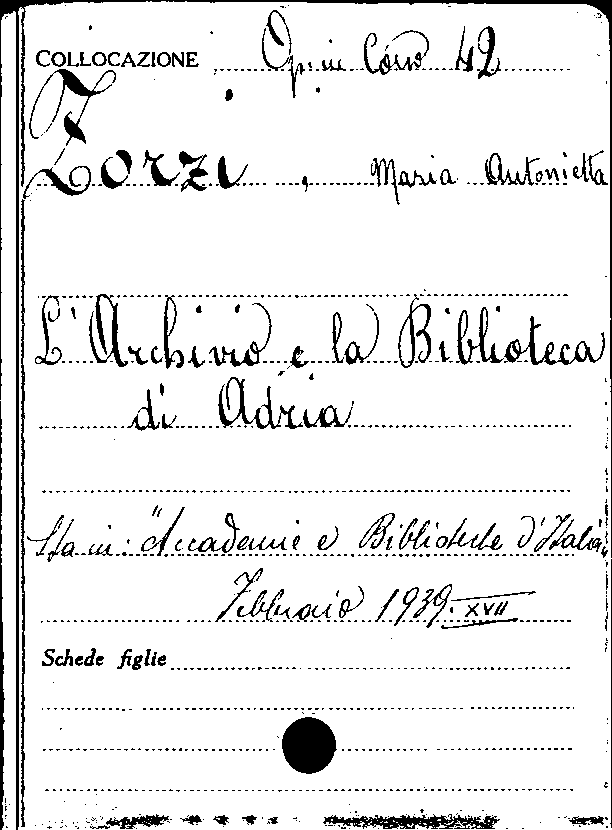 COLLOCAZIONE Op. in Corso 42
Zorzi, Maria Antonietta
L'Archivio e la Biblioteca
di Adria
Sta in: "Accademie e Biblioteche d'Italia"
Febbraio 1939. XVII
Schede figlie